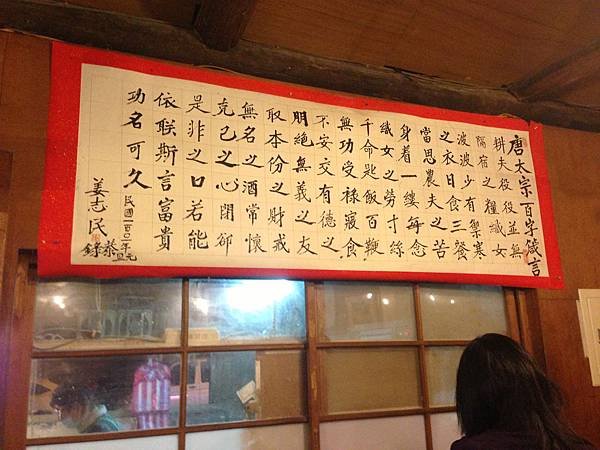 唐太宗百字箴言
耕夫役役並無
隔宿之糧織女
波波少有禦寒
之衣日食三餐
當思農夫之苦
身着一縷每念
織女之勞寸絲
千命匙飯百鞭
無功受祿寢食
不安交有德之
朋絕無義之友
取本份之財戒
無名之酒常懷
克己之心閉卻
是非之口若能
依朕斯言富貴
功名可久
民國一百〇二年元旦
姜志民恭錄